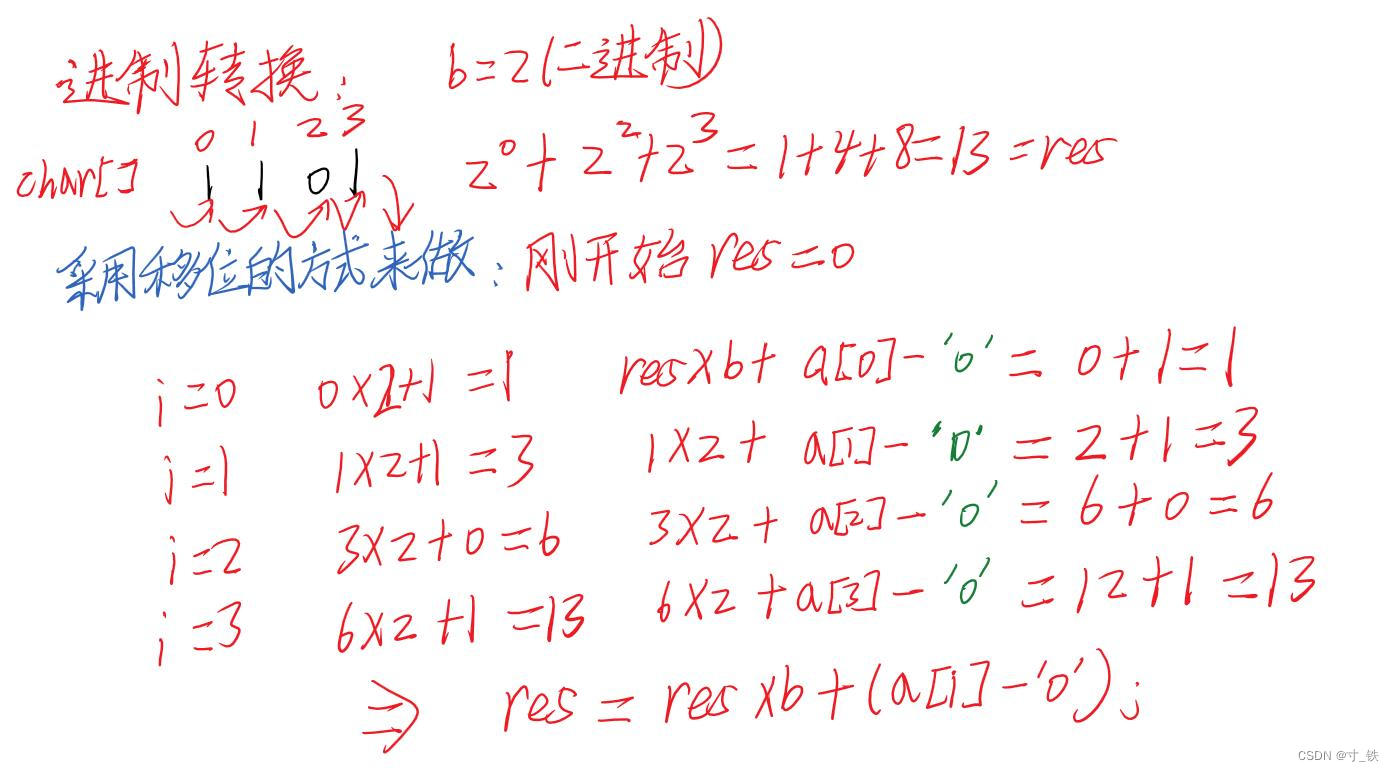 进制转换: b=2(二进制)
0 1 2 3
char[] 1 1 0 1 2⁰+2²+2³=1+4+8=13=res
采用移位的方式来做: 刚开始 res=0
i=0 0×2+1=1 res×b+a[0]-'0'=0+1=1
i=1 1×2+1=3 1×2+a[1]-'0'=2+1=3
i=2 3×2+0=6 3×2+a[2]-'0'=6+0=6
i=3 6×2+1=13 6×2+a[3]-'0'=12+1=13
⇒ res=res×b+(a[i]-'0');
CSDN @寸_铁